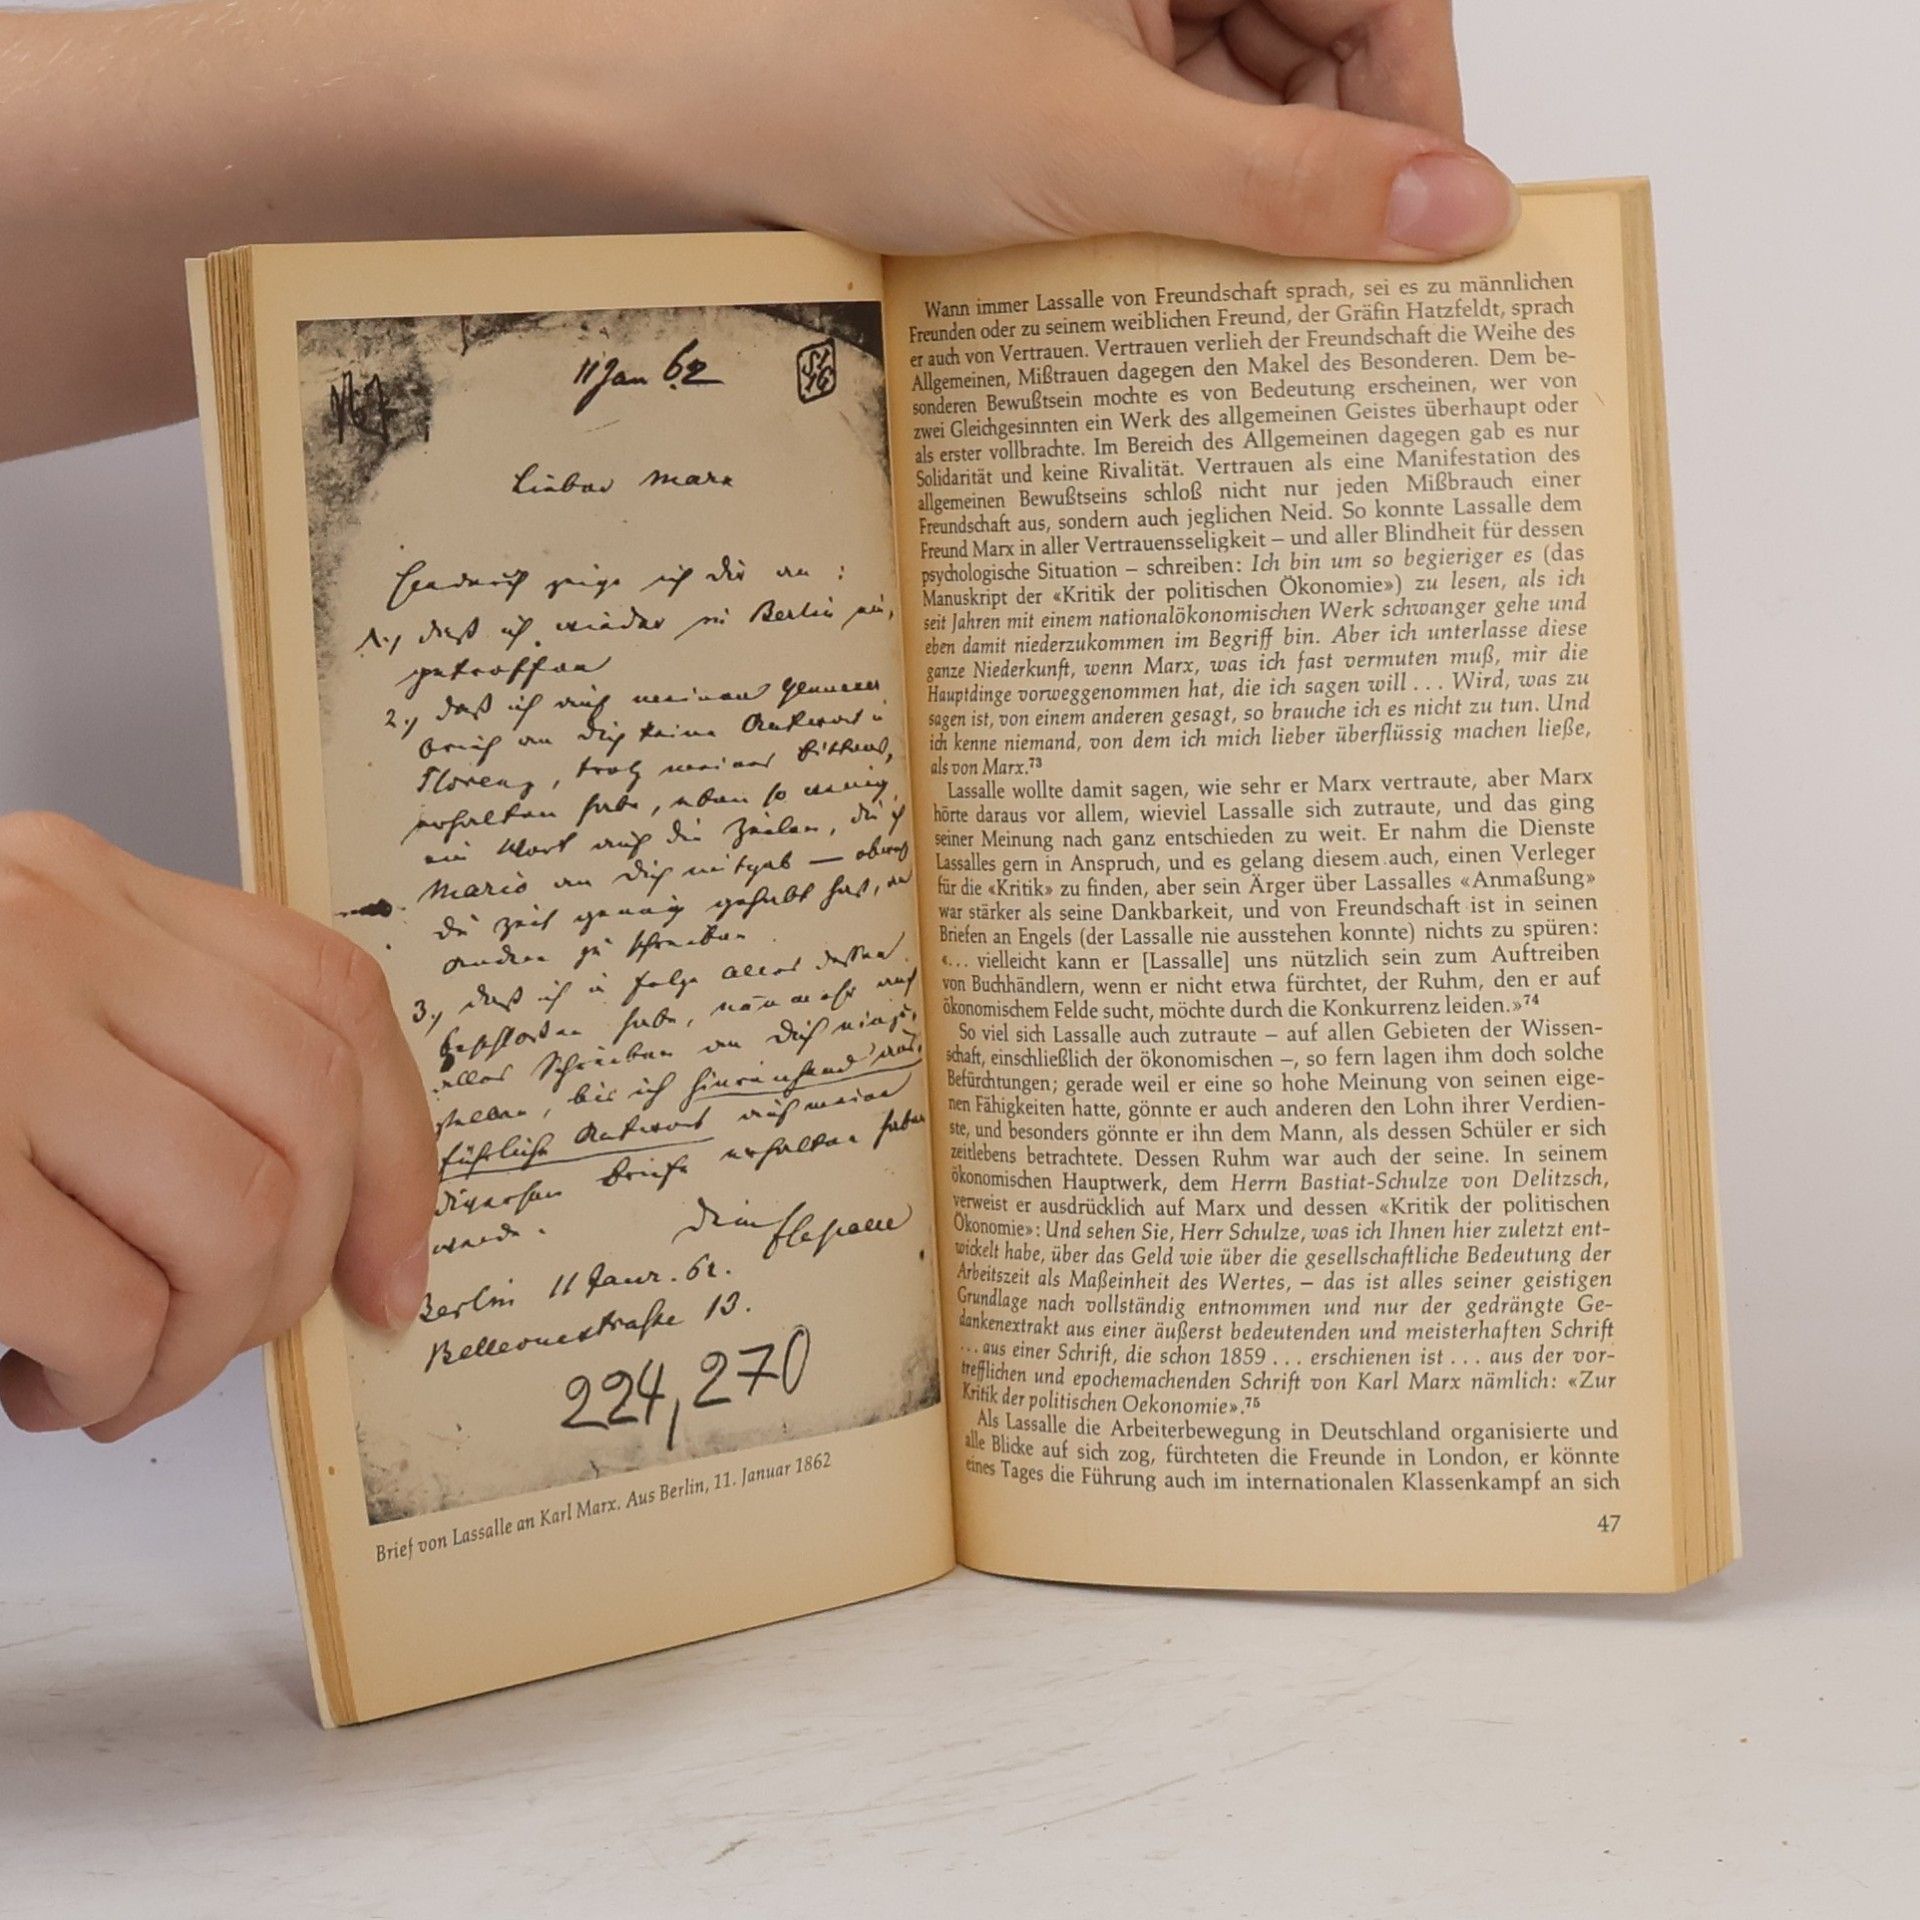 11 Jan 62
Lieber Marx
zeige ich dir an :
1.) daß ich wieder in Berlin ein,
getroffen
2.) daß ich auf meinen
Brief an dich keine Antwort in
Florenz, trotz meines Bittens,
erhalten habe, eben so wenig
ein Wort auf die Zeilen, die ich
Mario an dich mitgab — obwohl
du Zeit genug gehabt hast, an
Andre zu schreiben
3.) daß ich in Folge alles dessen
beschlossen habe, nunmehr auch
alles Schreiben an dich einzu,
stellen, bis ich hinreichend aus,
führliche Antwort auf meine
diversen Briefe erhalten haben
werde.
Dein FLassalle
Berlin 11 Janr. 62.
Bellevuestraße 13.
224,270
Brief von Lassalle an Karl Marx. Aus Berlin, 11. Januar 1862
Wann immer Lassalle von Freundschaft sprach, sei es zu männlichen
Freunden oder zu seinem weiblichen Freund, der Gräfin Hatzfeldt, sprach
er auch von Vertrauen. Vertrauen verlieh der Freundschaft die Weihe des
Allgemeinen, Mißtrauen dagegen den Makel des Besonderen. Dem be-
sonderen Bewußtsein mochte es von Bedeutung erscheinen, wer von
zwei Gleichgesinnten ein Werk des allgemeinen Geistes überhaupt oder
als erster vollbrachte. Im Bereich des Allgemeinen dagegen gab es nur
Solidarität und keine Rivalität. Vertrauen als eine Manifestation des
allgemeinen Bewußtseins schloß nicht nur jeden Mißbrauch einer
Freundschaft aus, sondern auch jeglichen Neid. So konnte Lassalle dem
Freund Marx in aller Vertrauensseligkeit – und aller Blindheit für dessen
psychologische Situation – schreiben: Ich bin um so begieriger es (das
Manuskript der «Kritik der politischen Ökonomie») zu lesen, als ich
seit Jahren mit einem nationalökonomischen Werk schwanger gehe und
eben damit niederzukommen im Begriff bin. Aber ich unterlasse diese
ganze Niederkunft, wenn Marx, was ich fast vermuten muß, mir die
Hauptdinge vorweggenommen hat, die ich sagen will . . . Wird, was zu
sagen ist, von einem anderen gesagt, so brauche ich es nicht zu tun. Und
ich kenne niemand, von dem ich mich lieber überflüssig machen ließe,
als von Marx.73
Lassalle wollte damit sagen, wie sehr er Marx vertraute, aber Marx
hörte daraus vor allem, wieviel Lassalle sich zutraute, und das ging
seiner Meinung nach ganz entschieden zu weit. Er nahm die Dienste
Lassalles gern in Anspruch, und es gelang diesem auch, einen Verleger
für die «Kritik» zu finden, aber sein Ärger über Lassalles «Anmaßung»
war stärker als seine Dankbarkeit, und von Freundschaft ist in seinen
Briefen an Engels (der Lassalle nie ausstehen konnte) nichts zu spüren:
«. . . vielleicht kann er [Lassalle] uns nützlich sein zum Auftreiben
von Buchhändlern, wenn er nicht etwa fürchtet, der Ruhm, den er auf
ökonomischem Felde sucht, möchte durch die Konkurrenz leiden.»74
So viel sich Lassalle auch zutraute – auf allen Gebieten der Wissen-
schaft, einschließlich der ökonomischen –, so fern lagen ihm doch solche
Befürchtungen; gerade weil er eine so hohe Meinung von seinen eige-
nen Fähigkeiten hatte, gönnte er auch anderen den Lohn ihrer Verdien-
ste, und besonders gönnte er ihn dem Mann, als dessen Schüler er sich
zeitlebens betrachtete. Dessen Ruhm war auch der seine. In seinem
ökonomischen Hauptwerk, dem Herrn Bastiat-Schulze von Delitzsch,
verweist er ausdrücklich auf Marx und dessen «Kritik der politischen
Ökonomie»: Und sehen Sie, Herr Schulze, was ich Ihnen hier zuletzt ent-
wickelt habe, über das Geld wie über die gesellschaftliche Bedeutung der
Arbeitszeit als Maßeinheit des Wertes, – das ist alles seiner geistigen
Grundlage nach vollständig entnommen und nur der gedrängte Ge-
dankenextrakt aus einer äußerst bedeutenden und meisterhaften Schrift
. . . aus einer Schrift, die schon 1859 . . . erschienen ist . . . aus der vor-
trefflichen und epochemachenden Schrift von Karl Marx nämlich: «Zur
Kritik der politischen Oekonomie».75
Als Lassalle die Arbeiterbewegung in Deutschland organisierte und
alle Blicke auf sich zog, fürchteten die Freunde in London, er könnte
eines Tages die Führung auch im internationalen Klassenkampf an sich
47